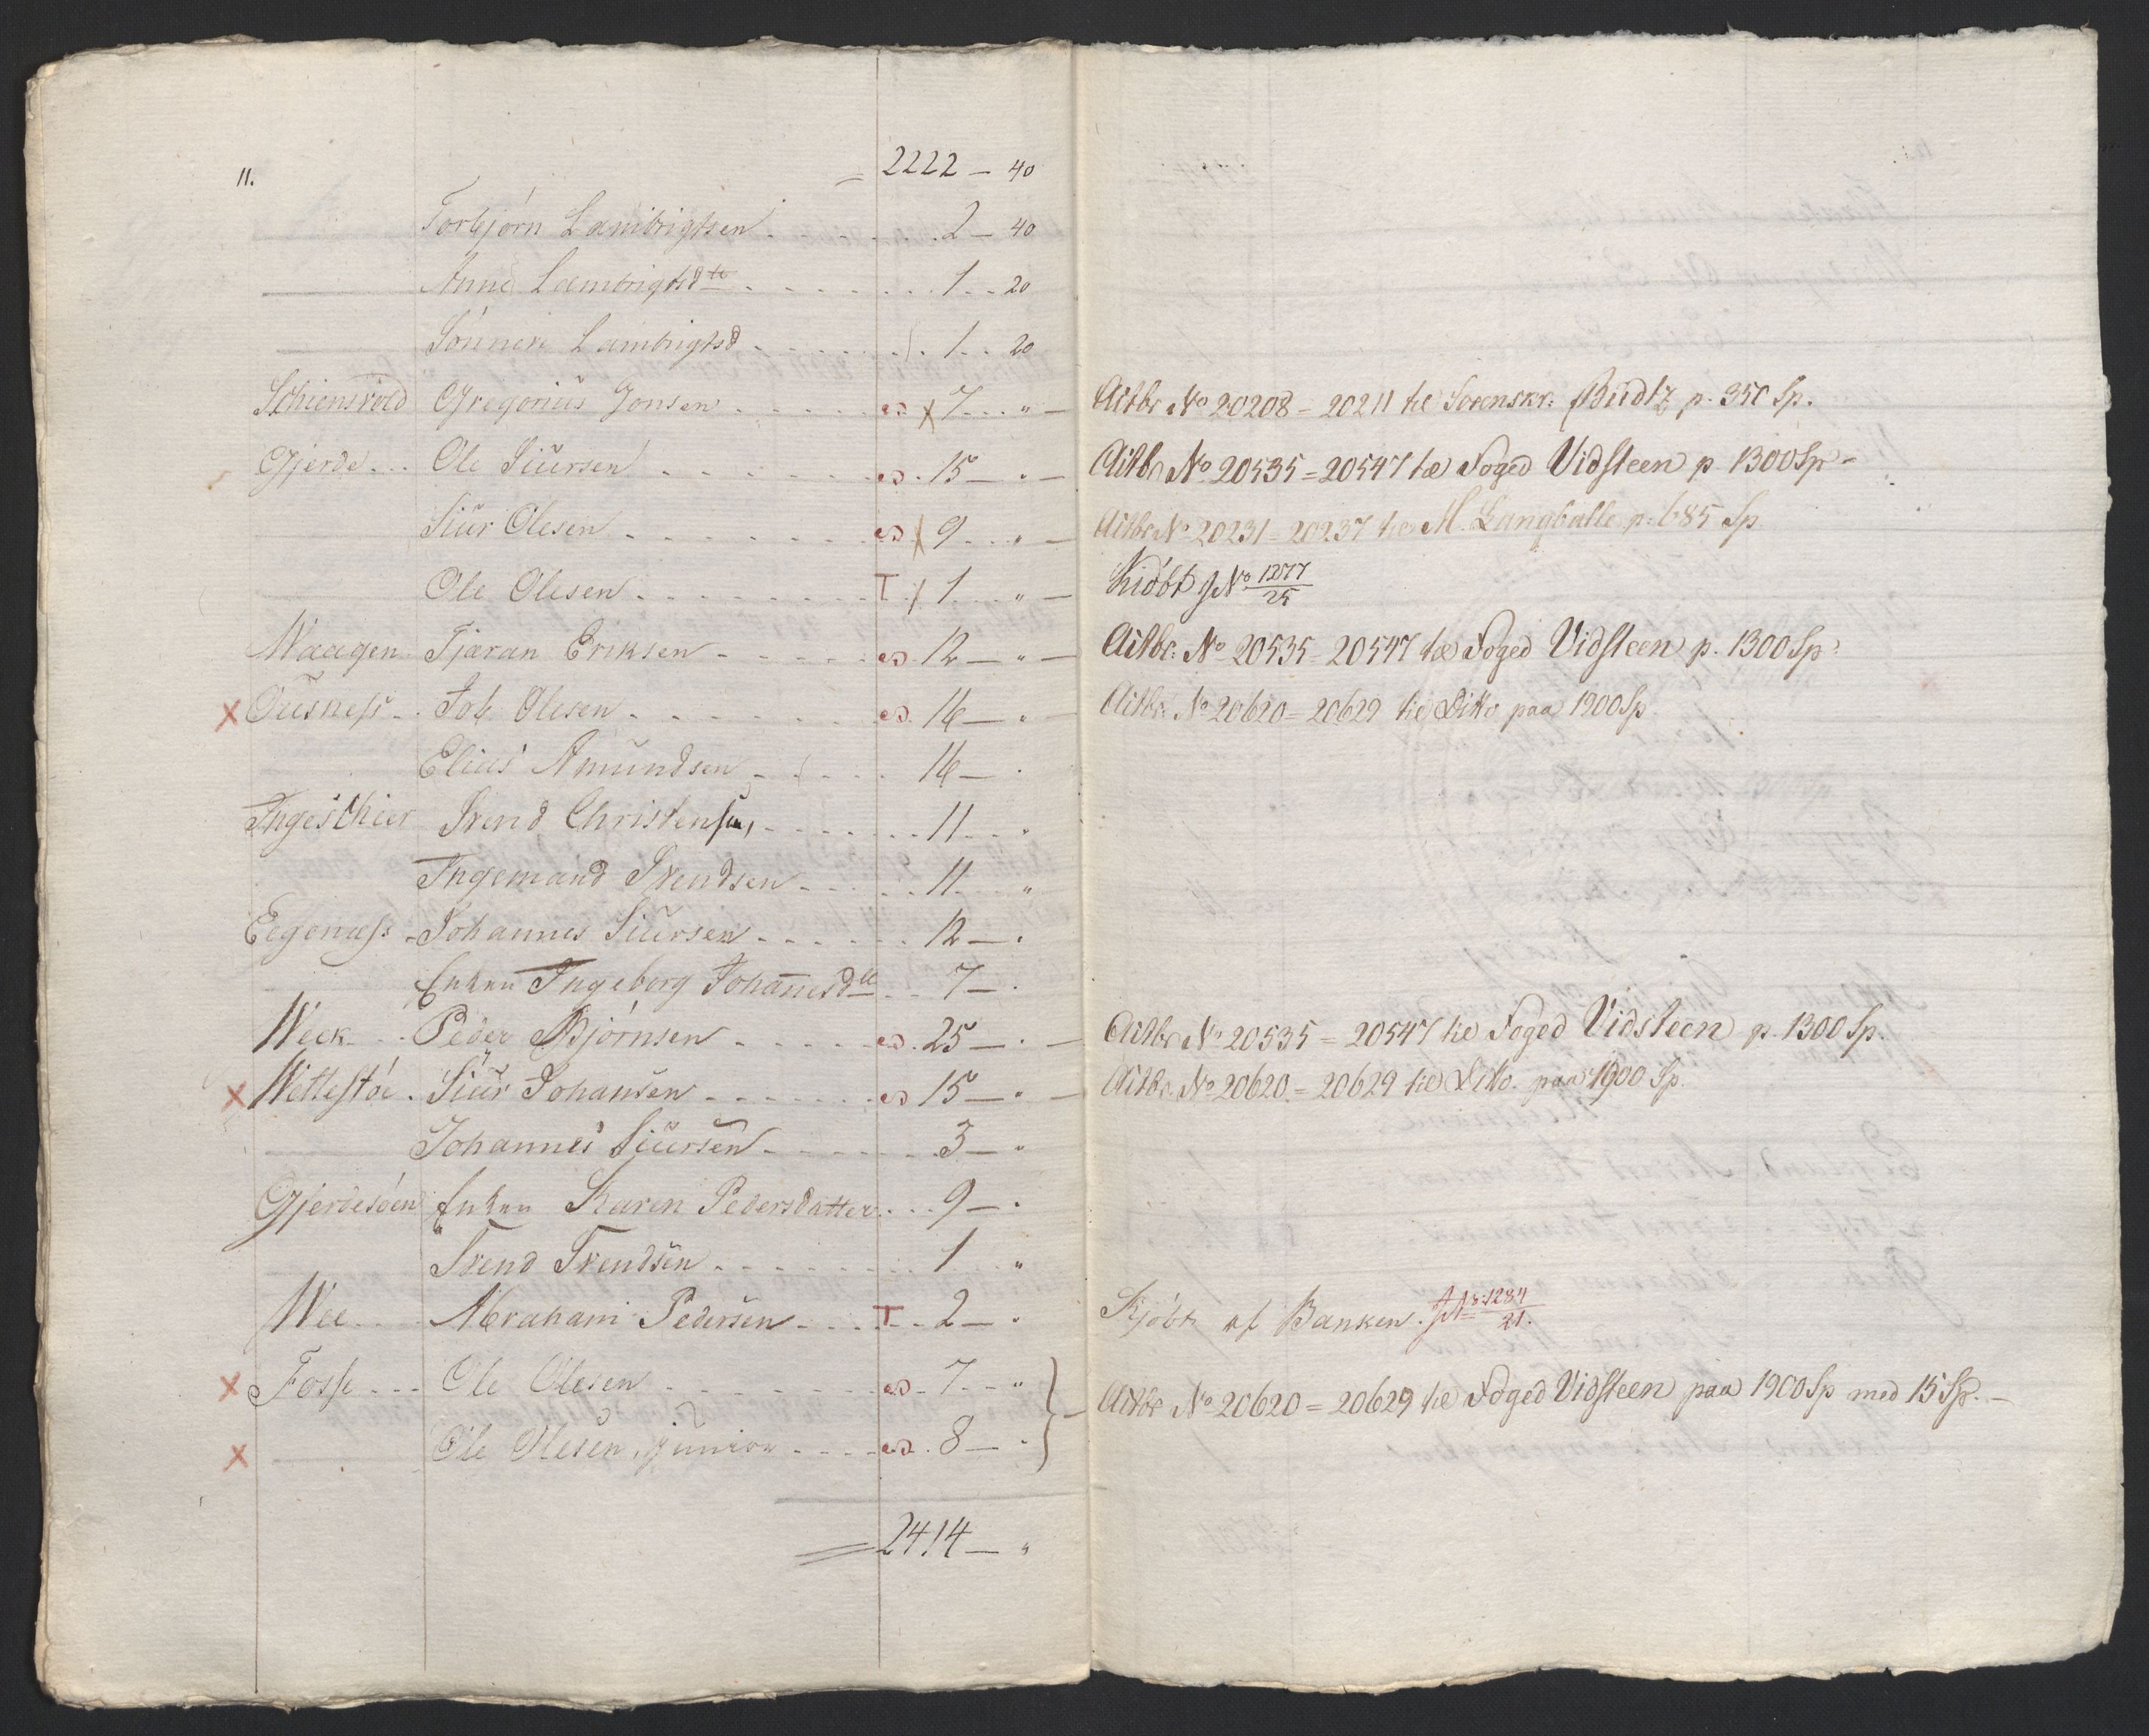 11. = 2222 - 40
Torbjørn Lambrigtsen . . . . . . 2 - 40
Anne Lambrigtsdtr . . . . . . 1 . . 20
Sønneve Lambrigtsd . . . . . 1 . . 20
Schiensvold Gregorius Jonsen . . . . . x 7 . . . " - Actbr No 20208 - 20211 til Sorenskr: Budtz p. 350 Sp.
Gjerde . . . Ole Siursen . . . . . . 15 - " - Actbr No 20535 = 20547 til Foged Vidsteen p 1300 Sp -
Siur Olesen . . . . . . . x 9 . . . " - Actbr No 20231 = 20237 til M. Langballe p. 685 Sp
Ole Olesen . . . . . . . T x 1 . . . " - Kiøbt J No 1277/25
Waagen Tjæran Eriksen - . . . . . 12 - " - Actbr: No 20535 = 20547 til Foged Vidsteen p. 1300 Sp.
x Ousness . . Job Olesen . . . . . . 16 - " - Actbr: No 20620 = 20629 til Ditto paa 1900 Sp
Elius Amundsen . . . . . 16 - "
Ingeschier Svend Christensen . . . . . . 11 . . . "
Ingemand Svendsen . . . . . 11 . . . "
Eegeness - Johannes Siursen . . . . . . 12 - "
Enken Ingeborg Johannesdtt . . . 7 - "
Week . . . Peder Bjørnsen . . . . . . 25 - " - Actbr No 20535 = 20547 til Foged Vidsteen p. 1300 Sp.
x Wettestøe . Siur Johansen . . . . . . 15 - " - Actbr. No 20620 = 20629 til Ditto. paa 1900 Sp.
Johannes Siursen . . . . . . 3 - "
Gjerdesøen Enken Karen Pedersdatter . . . 9 - "
Svend Svendsen . . . . . . 1 "
Wee . . . . Abraham Pedersen . . . . T . . 2 - " Kjøbt af Banken. J No 1284/21.
x Fosse . . . Ole Olesen . . . . . . . 7 . . . "
x Ole Olesen junior . . . . . 8 - " } - Actbr No 20620 = 20629 til Foged Vidsteen paa 1900 Sp med 15 Sp. -
= 2414 - "